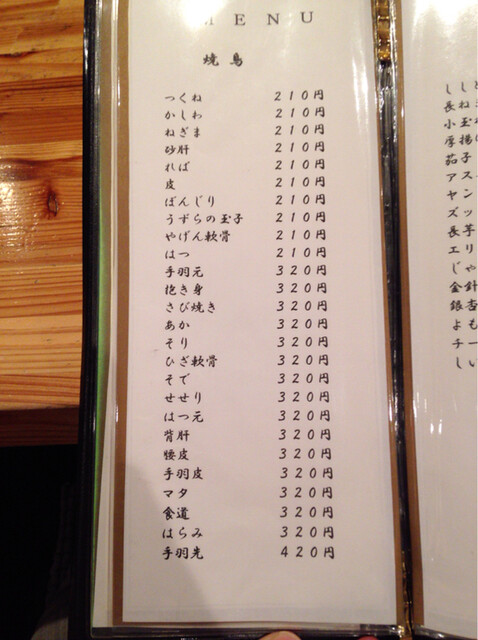 MENU
焼鳥
つくね 210円
かしわ 210円
ねぎま 210円
砂肝 210円
ればー 210円
皮 210円
ぼんじり 210円
うずらの玉子 210円
やげん軟骨 210円
はつ 210円
手羽元 320円
抱き身 320円
さび焼き 320円
あか 320円
そり 320円
ひざ軟骨 320円
そで 320円
せせり 320円
はつ元 320円
背肝 320円
腰皮 320円
手羽皮 320円
マタ 320円
食道 320円
はらみ 320円
手羽先 420円
しし
長ね
小玉
厚揚
茄子
アス
ヤン
ズッ
長芋
エリ
じゃ
金針
銀杏
よも
チー
しい